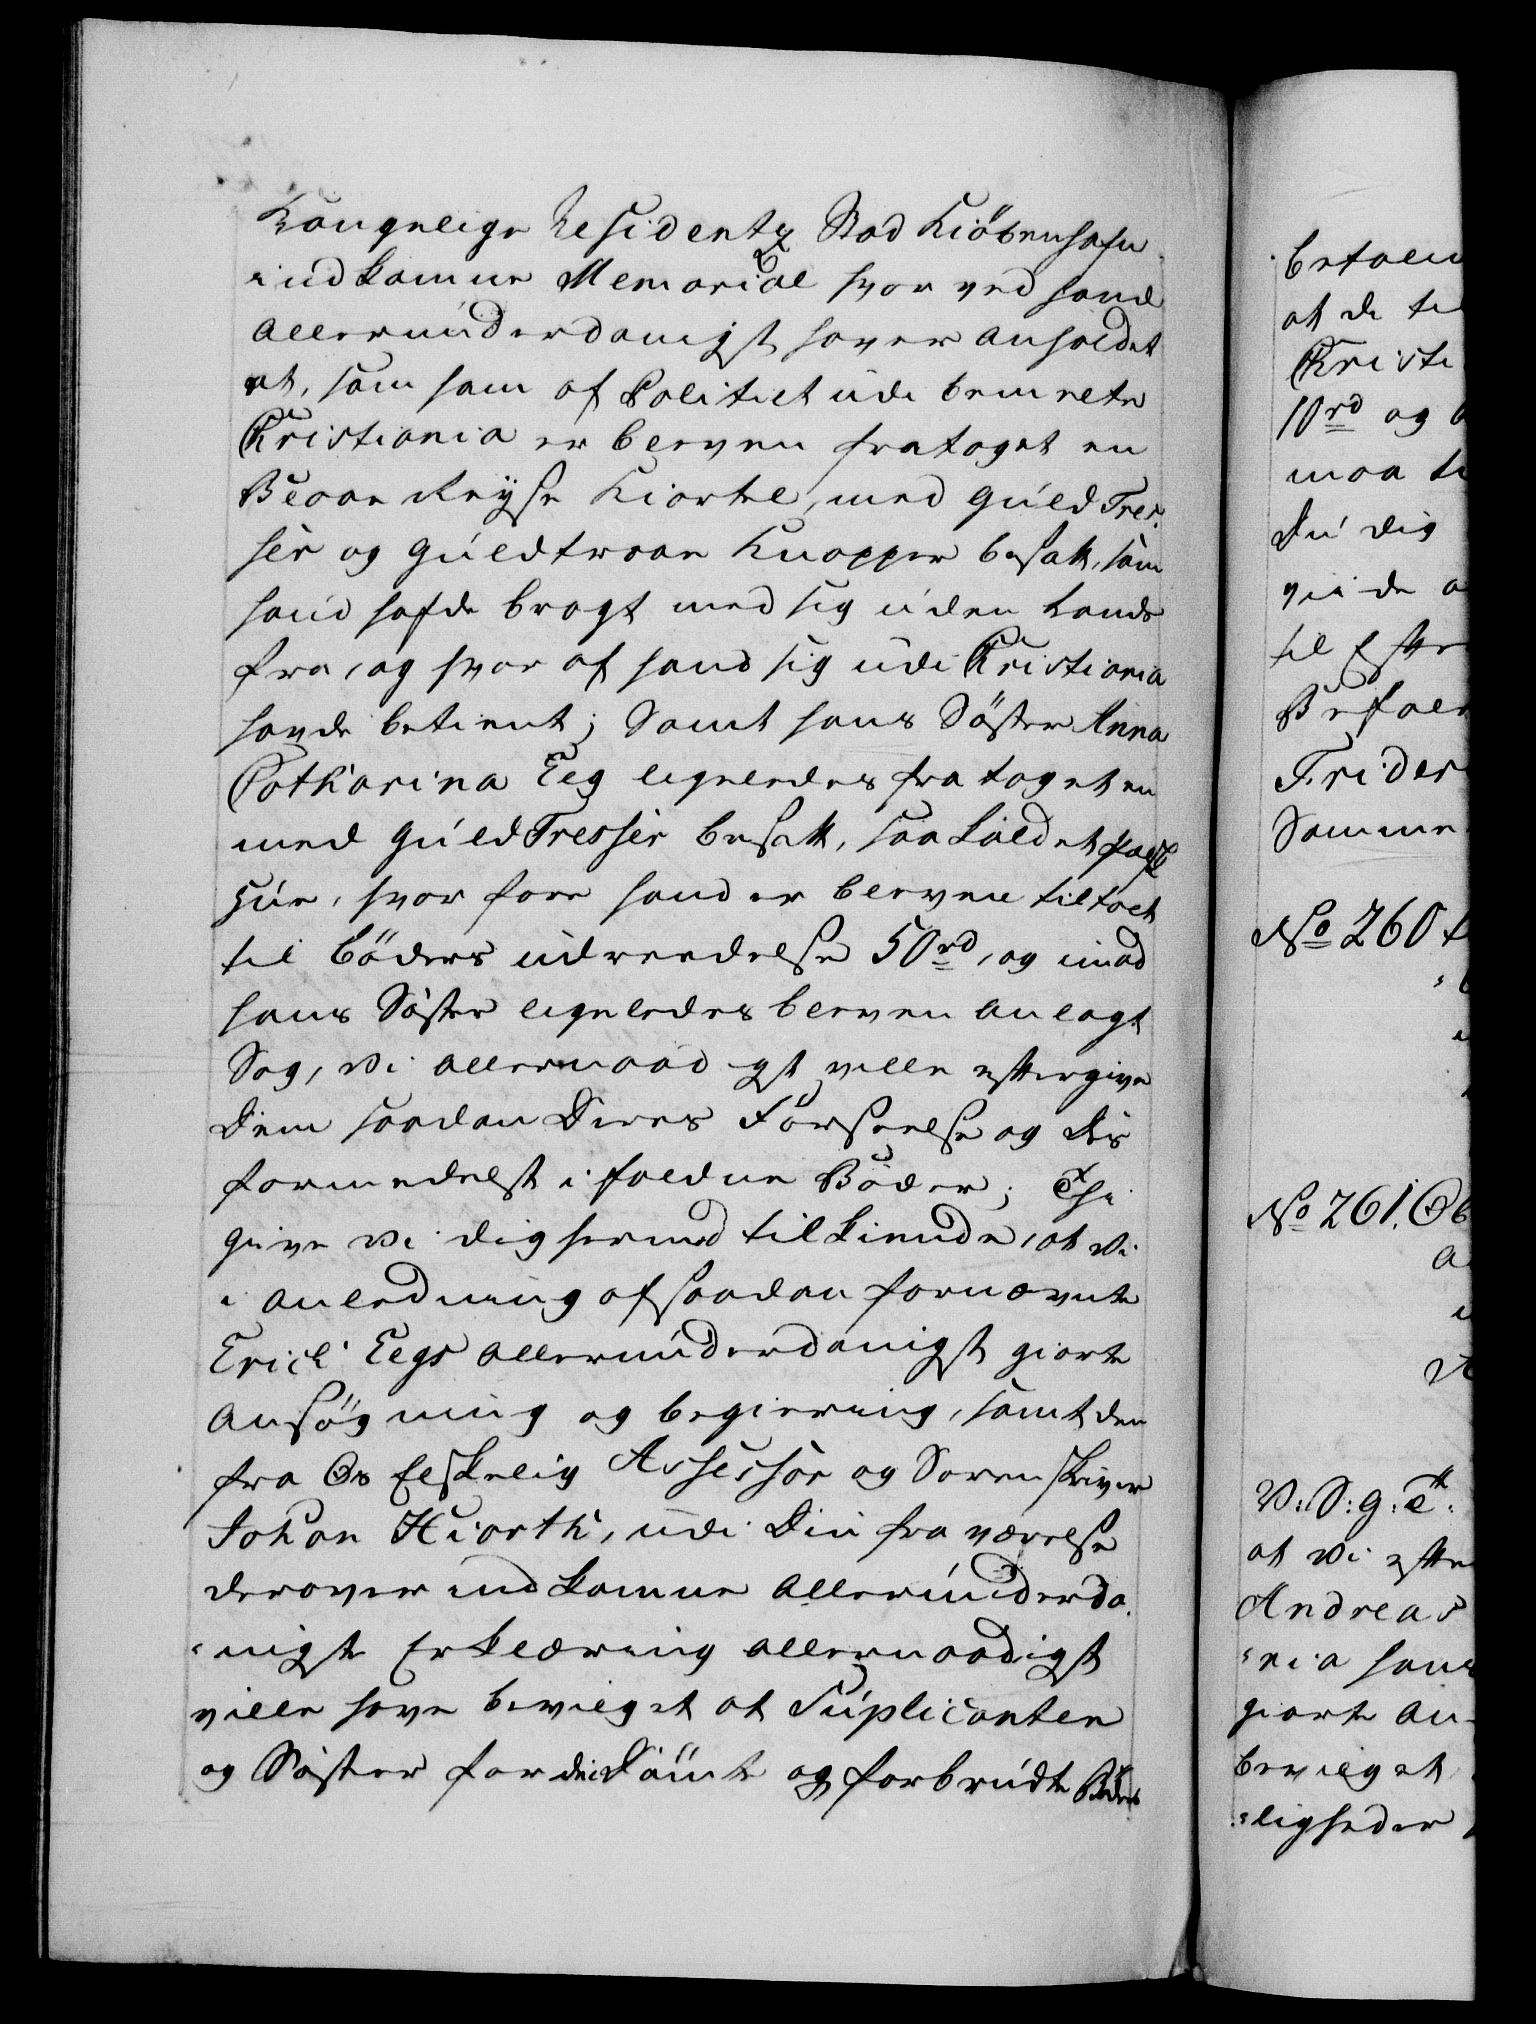 Kongelige Residentz Stad Kiöbenhafn
indkomne Memorial hvor ved hand
allerunderdanigst haver anholdet
at, som ham af Politiet udi bemelte
Christiania er bleven frataget en
Blaae Reyse Kiortel, med Guld Tres-
ser og Guldtraae Knapper besatt, som
hand hafde bragt med sig uden Lands
fra, og hvor af hand sig udi Christiania
havde betient; Samt hans Söster Anna
Catharina Eeg ligeledes frataget en
med Guld Tresser besatt, saa kaldet
hvor fore hand er bleven tiltalt
til Böders udreedelse 50 rd, og imod
hans Söster ligeledes bleven anlagt
Sag, Vi allernaadigst ville eftergive
Dem saadan Deres Forseelse og des
formedelst ifaldne Böder; Thi
give Vi dig hermed tilkiende, at Vi
i anledning af saadan fornævnte
Erich Eegs allerunderdanigst giorte
ansögning og begiering, samt den
fra Os Elskelig Assessor og Sorenskriver
Johan Hiorth, udi Din fraværelse
derover indkomne allerunderda-
nigste Erklæring allernaadigst
ville have bevilget at Suplicanten
og Söster for de idömte og forbrudte Böder
betalen
at de til
Christi
10 rd og
maa
Du dig
vide
til Efter
Befalet
Frider
Samme
No 260
No 261. Ob
V: S: g: T:
at Vi efter
Andreas
nia hans
giorte an-
bevilget
ligheder